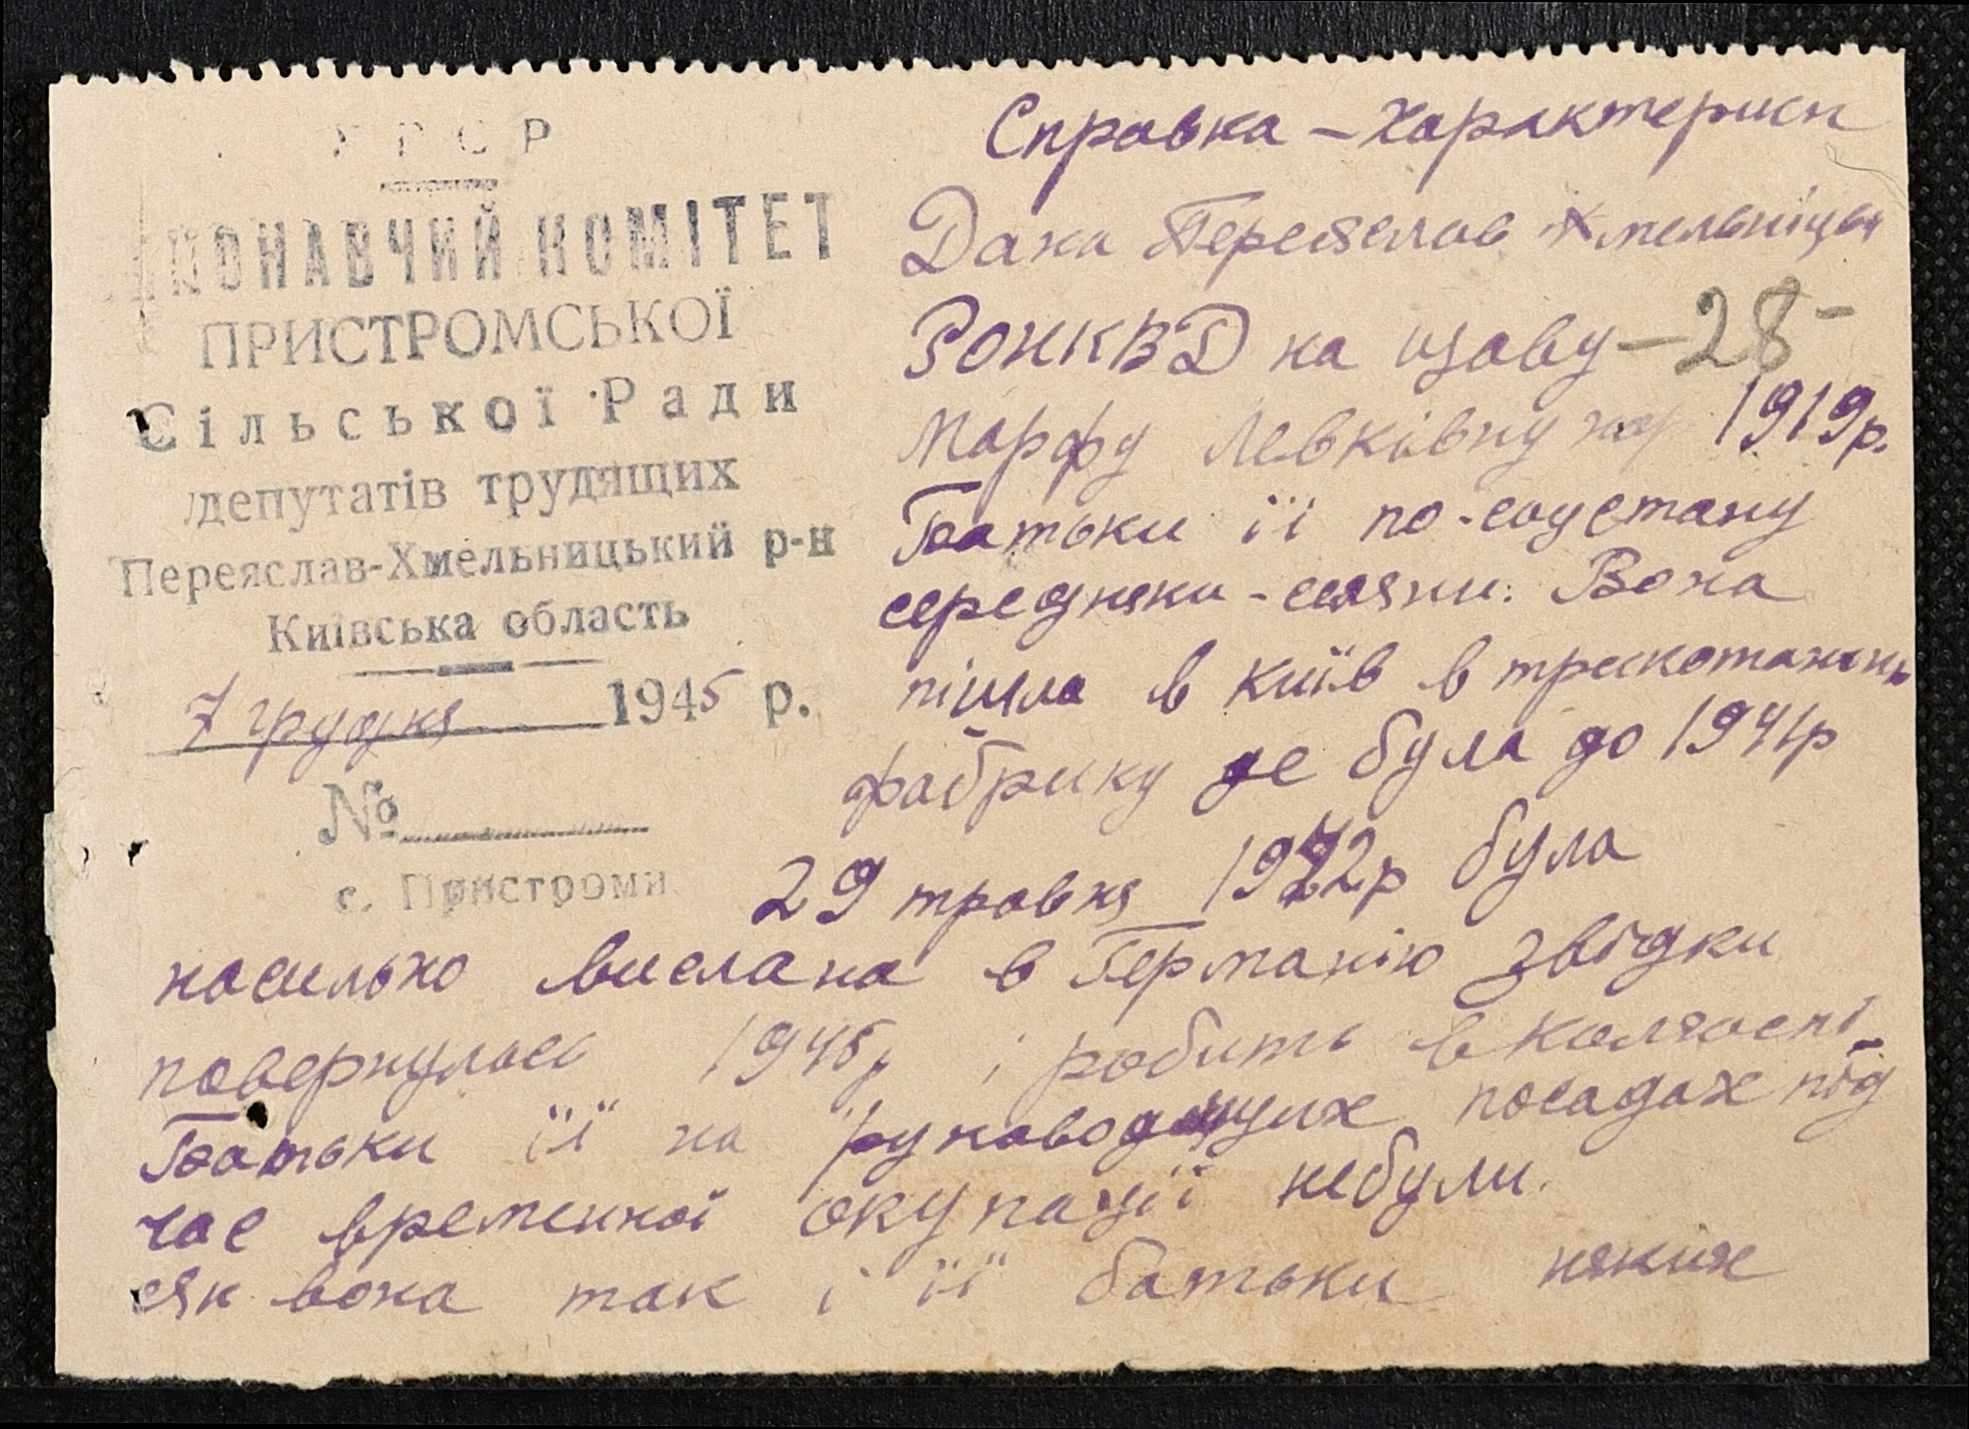 У Р С Р
ВИКОНАВЧИЙ КОМІТЕТ
ПРИСТРОМСЬКОЇ
Сільської Ради
депутатів трудящих
Переяслав-Хмельницький р-н
Київська область
7 грудня 1945 р.
№
с. Пристроми
Справка – Характерист
Дана Переяслав Хмельніцьк
РОНКВД на Цабу – 28 –
Марфу Левківну 1919р.
Батьки її по-соцстану
середняки-селяни. Вона
пішла в Київ в трикотажнь
фабрику де була до 1941р
29 травня 1942р була
насильно вислана в Германію звідки
повернулась 1945р і робить в колгоспі
Батьки її на руководящих посадах під
час временної окупації небули.
як вона так і її батьки няких